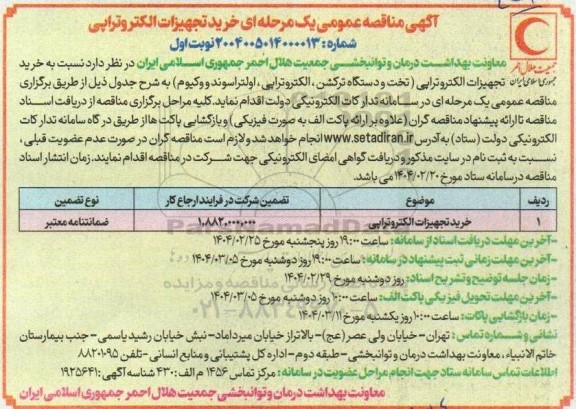 آگهی مناقصه عمومی یک مرحله ای خرید تجهیزات الکتروتراپی
شماره: ۲۰۰۴۰۰۵۰۱۴۰۰۰۰۱۳ نوبت اول
جمعیت هلال احمر
جمهوری اسلامی ایران
معاونت بهداشت درمان و توانبخشی جمعیت هلال احمر جمهوری اسلامی ایران در نظر دارد نسبت به خرید
تجهیزات الکتروتراپی ( تخت و دستگاه ترکشن ، الکتروتراپی ، اولتراسوند و وکیوم) به شرح جدول ذیل از طریق برگزاری
مناقصه عمومی یک مرحله ای در سامانه تدارکات الکترونیکی دولت اقدام نماید. کلیه مراحل برگزاری مناقصه از دریافت اسناد
مناقصه تا ارائه پیشنهاد مناقصه گران (علاوه بر ارائه پاکت الف به صورت فیزیکی) و بازگشایی پاکت ها از طریق درگاه سامانه تدارکات
الکترونیکی دولت (ستاد) به آدرس www.setadiran.ir انجام خواهد شد و لازم است مناقصه گران در صورت عدم عضویت قبلی ،
نسبت به ثبت نام در سایت مذکور و دریافت گواهی امضای الکترونیکی جهت شرکت در مناقصه اقدام نمایند. زمان انتشار اسناد
مناقصه در سامانه ستاد مورخ ۱۴۰۴/۰۲/۲۰ می باشد.
ردیف موضوع تضمین شرکت در فرایند ارجاع کار نوع تضمین
۱ خرید تجهیزات الکتروتراپی ۱,۸۸۲,۰۰۰,۰۰۰ ضمانتنامه معتبر
-آخرین مهلت دریافت اسناد از سامانه: ساعت ۱۹:۰۰ روز پنجشنبه مورخ ۱۴۰۴/۰۲/۲۵
-آخرین مهلت زمانی ثبت پیشنهاد در سامانه: ساعت ۱۹:۰۰ روز دوشنبه مورخ ۱۴۰۴/۰۳/۰۵
-زمان جلسه توضیح و تشریح اسناد: روز دوشنبه مورخ ۱۴۰۴/۰۲/۲۹
-آخرین مهلت تحویل فیزیکی پاکت الف: ساعت ۱۰:۰۰ روز دوشنبه مورخ ۱۴۰۴/۰۳/۰۵
-زمان بازگشایی پاکت: ساعت ۱۰:۰۰ روز یکشنبه مورخ ۱۴۰۴/۰۳/۱۱
نشانی و شماره تماس : تهران - خیابان ولی عصر (عج) - بالاتر از خیابان میرداماد - نبش خیابان رشید یاسمی - جنب بیمارستان
خاتم الانبیاء، معاونت بهداشت درمان و توانبخشی - طبقه دوم - اداره کل پشتیبانی و منابع انسانی - تلفن ۸۸۲۰۱۰۹۵
اطلاعات تماس سامانه ستاد جهت انجام مراحل عضویت در سامانه : مرکز تماس ۱۴۵۶ م الف: ۴۳۰ شناسه آگهی: ۱۹۲۵۶۴۱
معاونت بهداشت درمان و توانبخشی جمعیت هلال احمر جمهوری اسلامی ایران